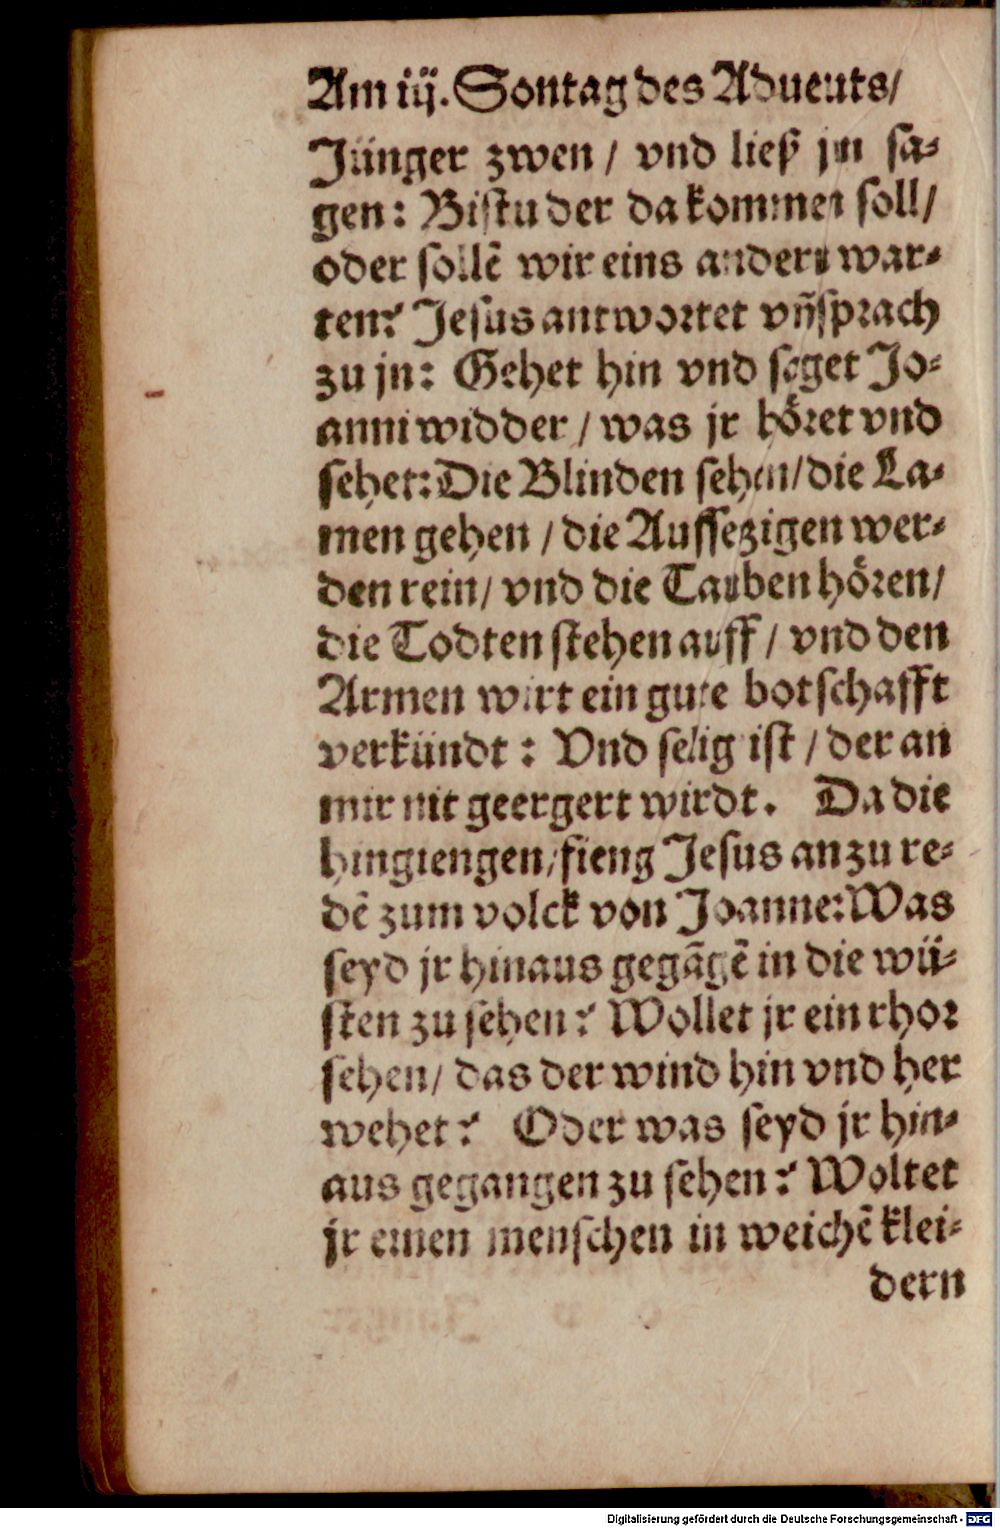 Am iij. Sontag des Aduents/
Jünger zwen / vnd ließ jm sa-
gen: Bistu der da kommen soll/
oder sollẽ wir eins andern war-
ten? Jesus antwortet vñ sprach
zu jn: Gehet hin vnd saget Jo-
anni widder / was jr höret vnd
sehet: Die Blinden sehen/ die La-
men gehen / die Aussezigen wer-
den rein/ vnd die Tauben hören/
die Todten stehen auff / vnd den
Armen wirt ein gute botschafft
verkündt : Vnd selig ist / der an
mir nit geergert wirdt. Da die
hingiengen/ fieng Jesus an zu re-
dẽ zum volck von Joanne: Was
seyd jr hinaus gegãgẽ in die wü-
sten zu sehen? Wollet jr ein rhor
sehen/ das der wind hin vnd her
wehet? Oder was seyd jr hin-
aus gegangen zu sehen? Woltet
jr einen menschen in weichẽ klei-
dern
Digitalisierung gefördert durch die Deutsche Forschungsgemeinschaft - DFG